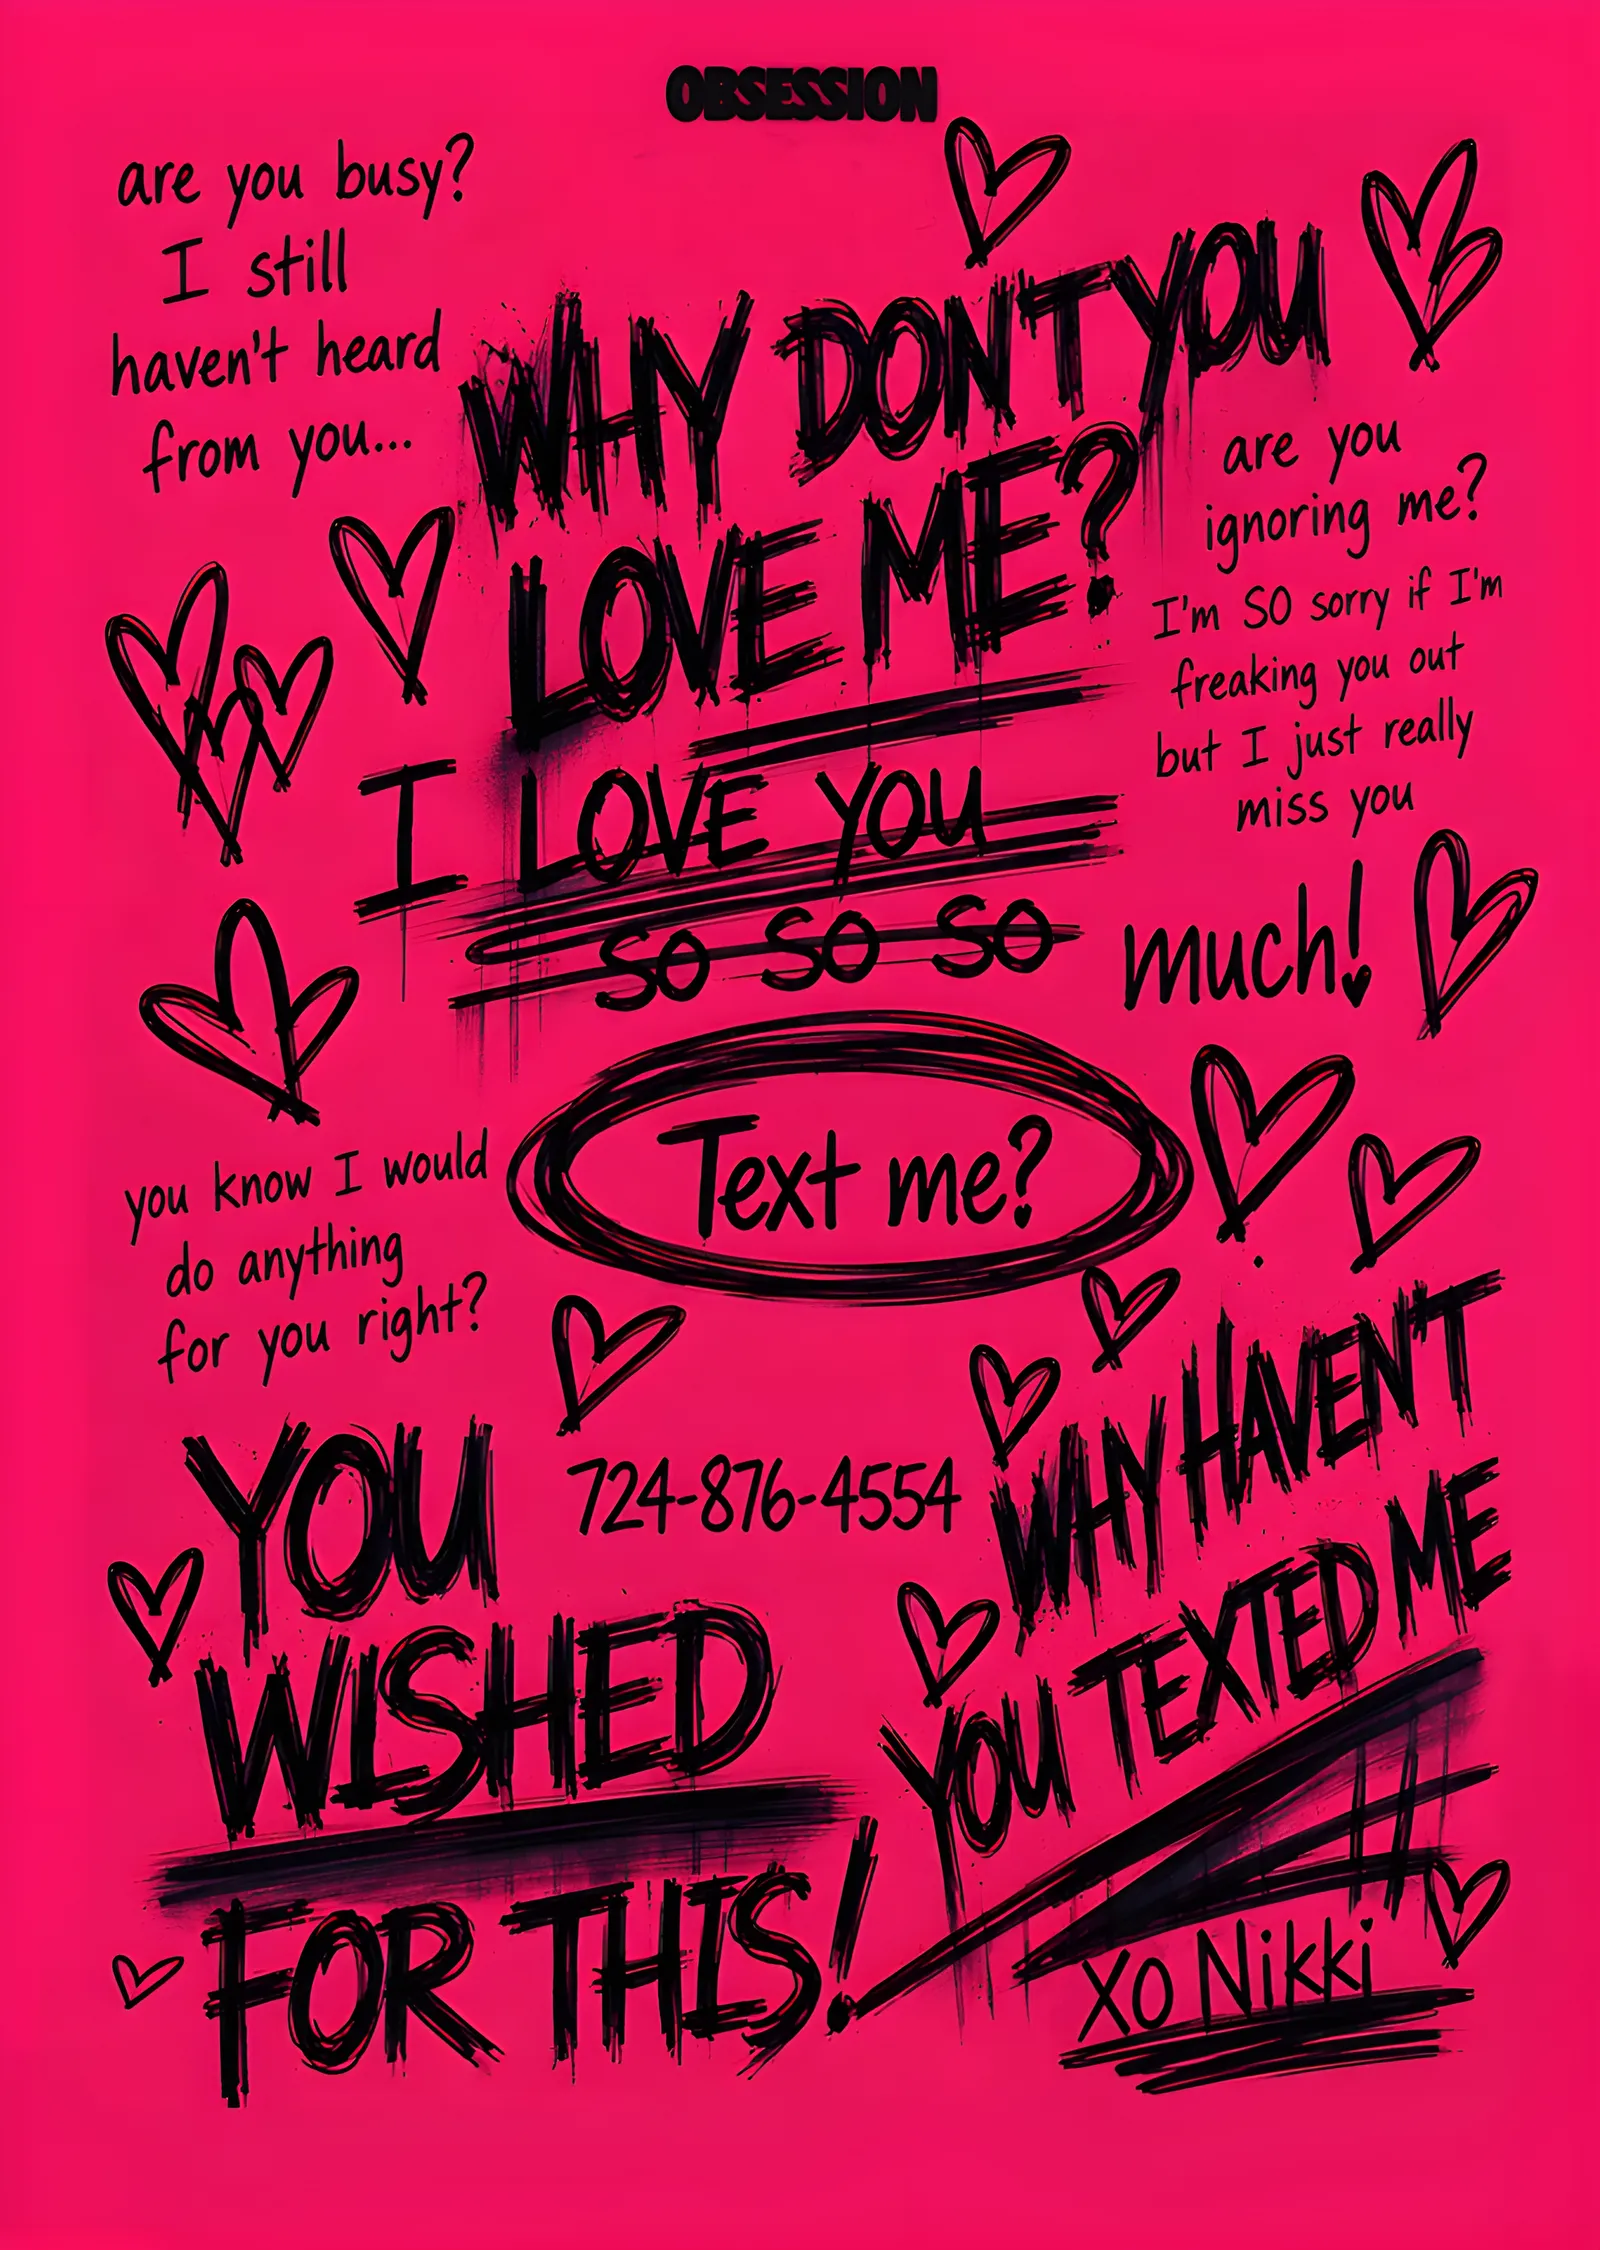 OBSESSION
are you busy?
I still
haven't heard
from you...
WHY DON'T YOU
LOVE ME?
are you
ignoring me?
I'm SO sorry if I'm
freaking you out
but I just really
miss you
I LOVE YOU
SO SO SO much!
Text me?
you know I would
do anything
for you right?
724-876-4554
YOU
WISHED
FOR THIS!
WHY HAVEN'T
YOU TEXTED ME
XO Nikki